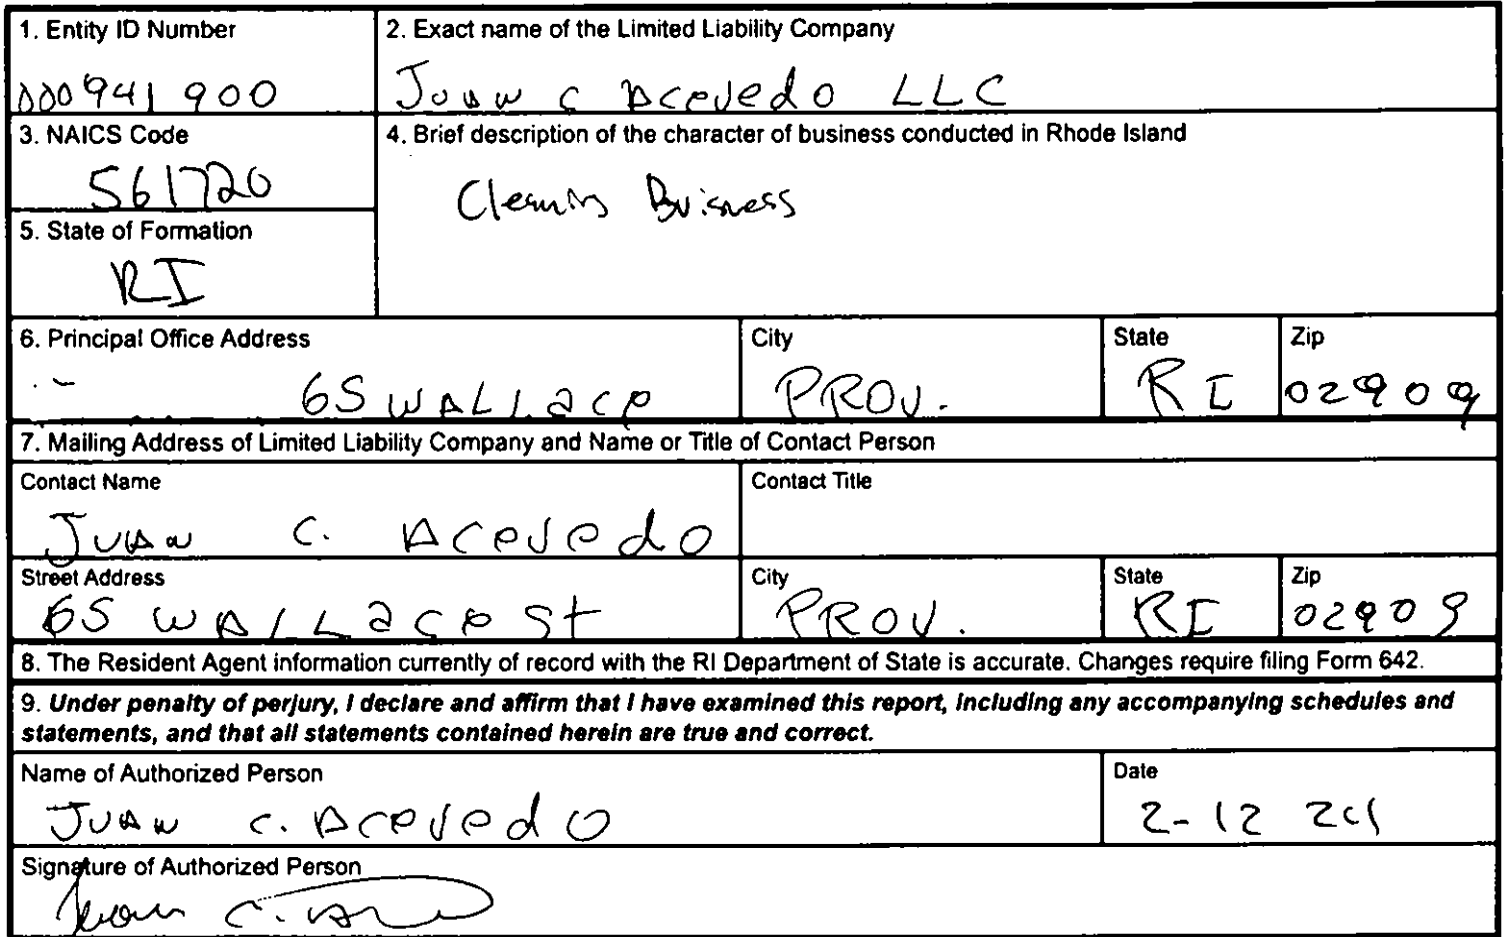 1. Entity ID Number
2. Exact name of the Limited Liability Company
000941900
Juan C Acevedo LLC
3. NAICS Code
4. Brief description of the character of business conducted in Rhode Island
561720
Cleaning Buisness
5. State of Formation
RI
6. Principal Office Address
City
State
Zip
65 WALLace
PROV.
RI
02909
7. Mailing Address of Limited Liability Company and Name or Title of Contact Person
Contact Name
Contact Title
Juan C. Acevedo
Street Address
City
State
Zip
65 WALLace St
PROV.
RI
02909
8. The Resident Agent information currently of record with the RI Department of State is accurate. Changes require filing Form 642.
9. Under penalty of perjury, I declare and affirm that I have examined this report, including any accompanying schedules and
statements, and that all statements contained herein are true and correct.
Name of Authorized Person
Date
Juan C. Acevedo
2-12
Signature of Authorized Person
Juan C.